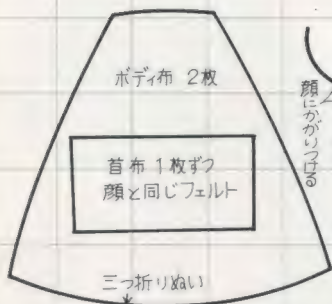 ボディ布 2枚
首布 1枚ずつ
顔と同じフェルト
三つ折りぬい
顔にかがりつける